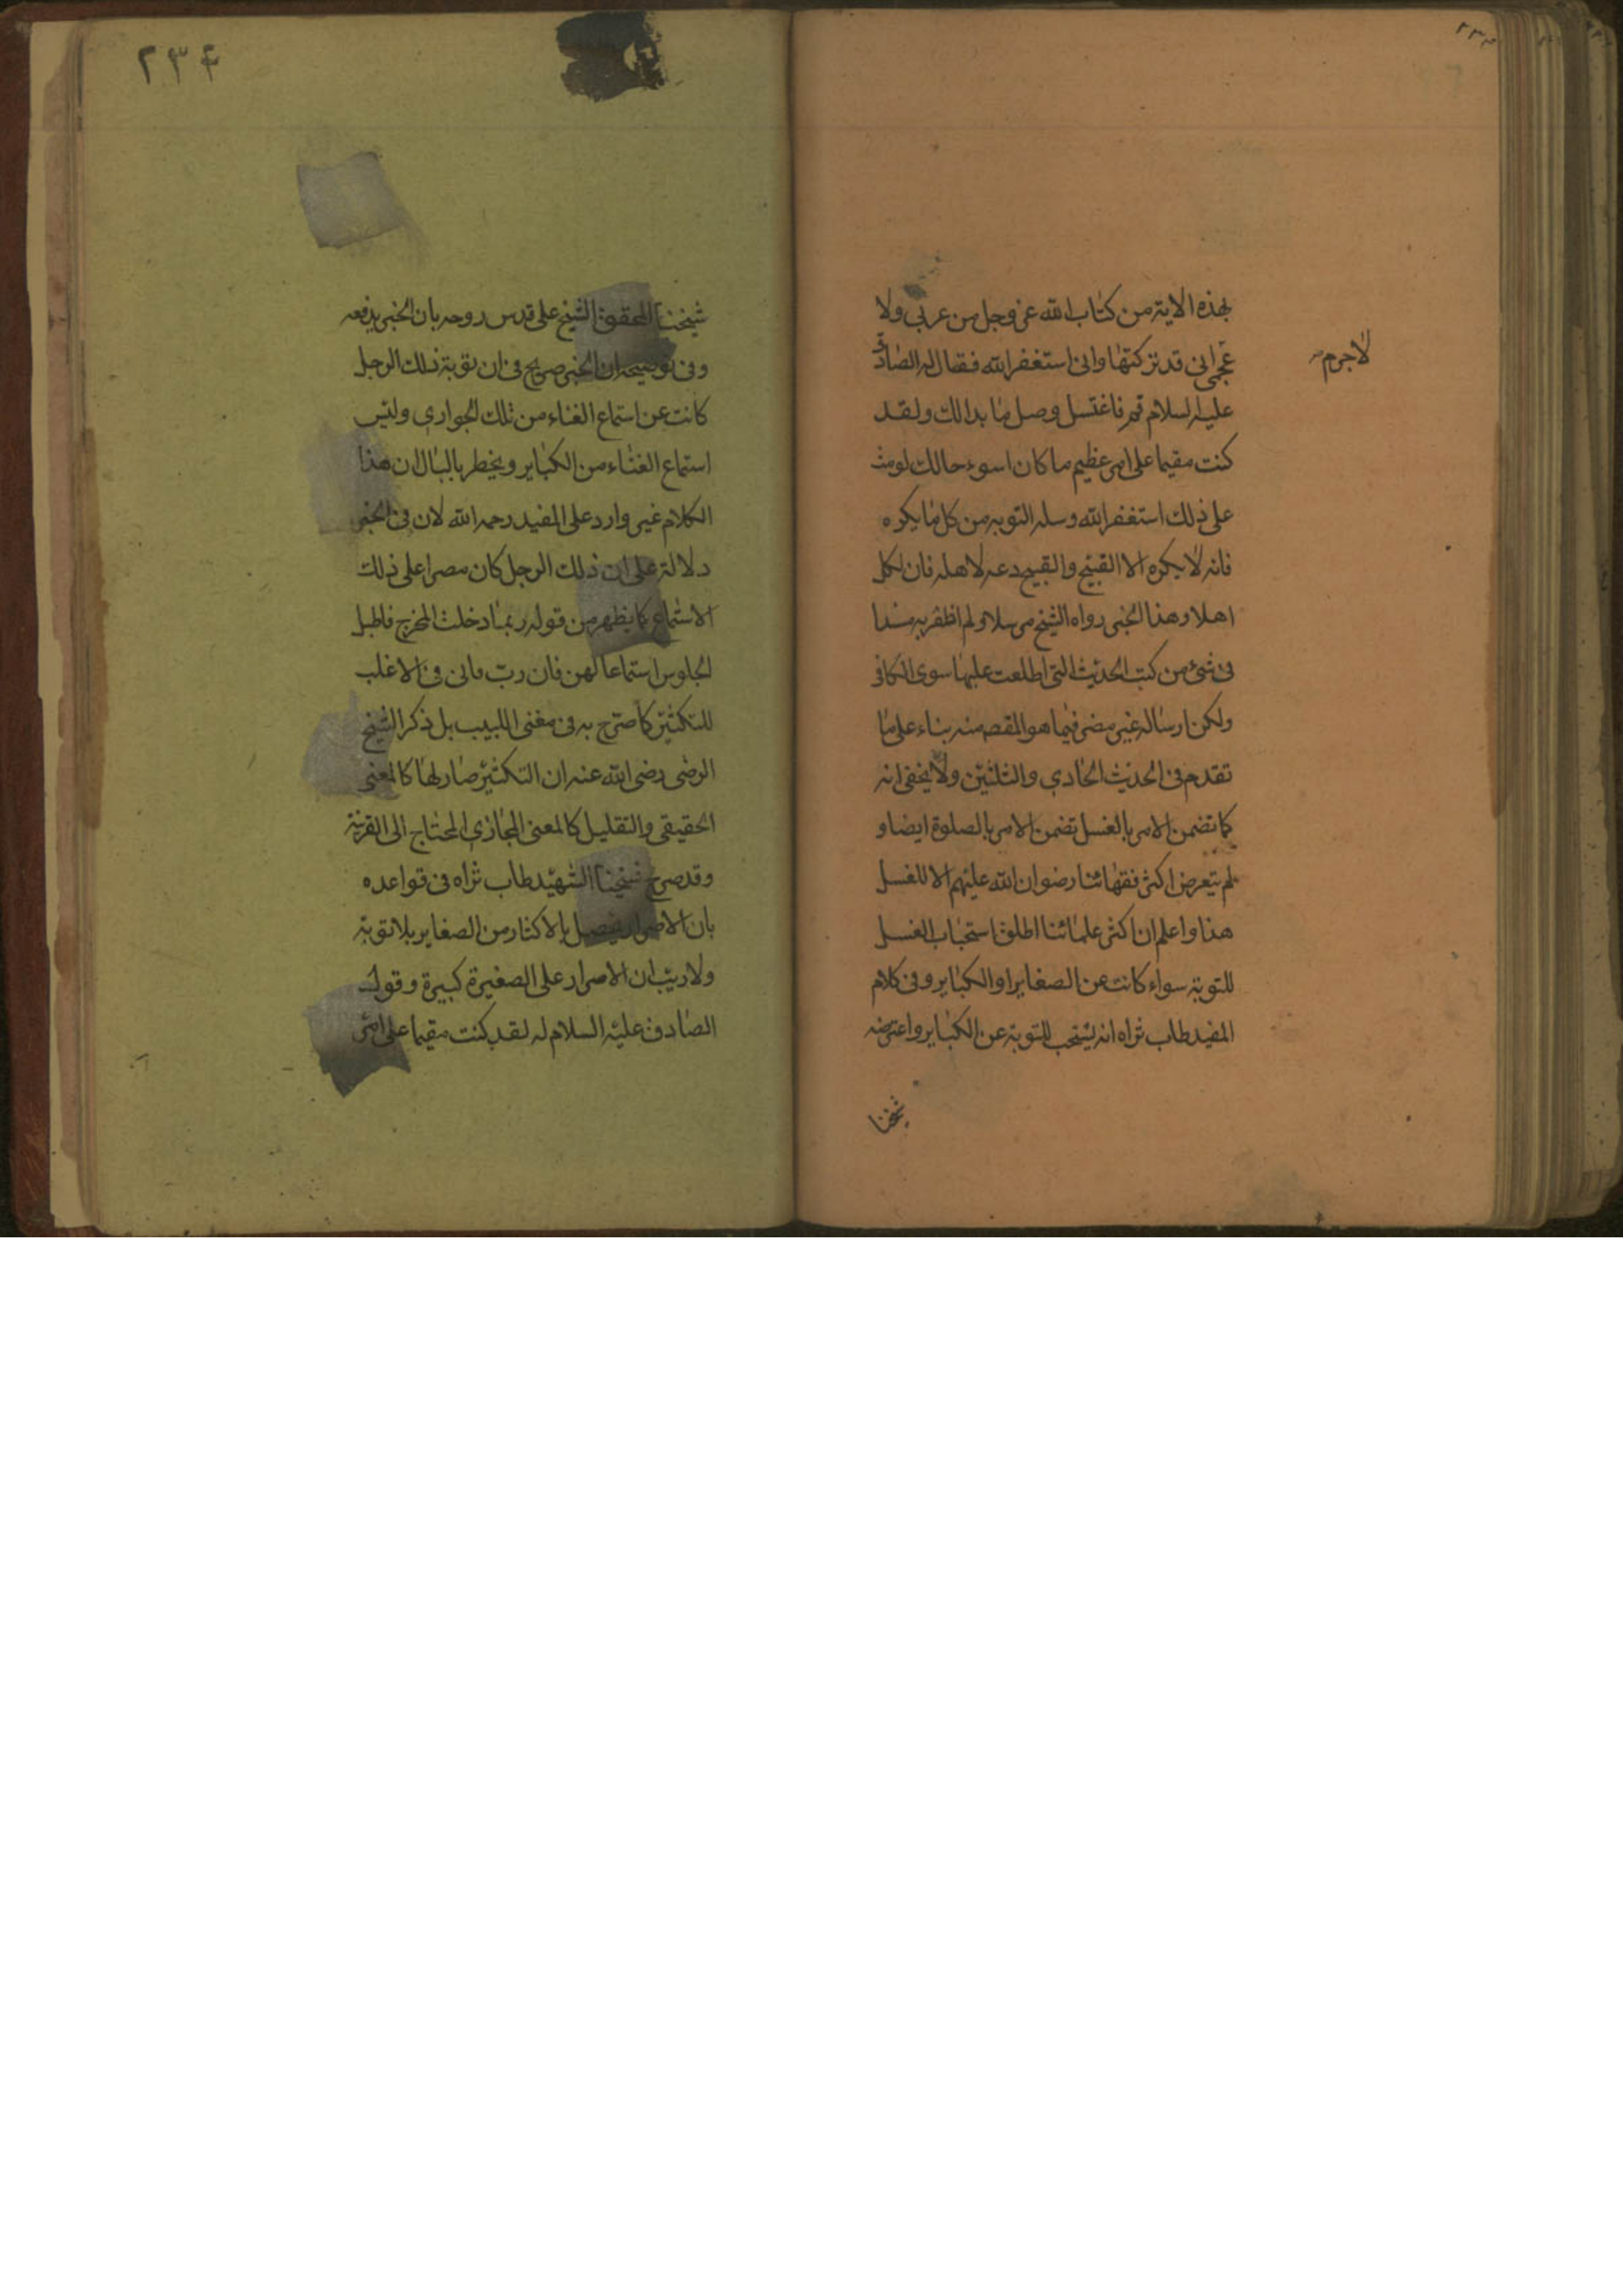 بهذه الاية من كتاب الله عز وجل من عربي ولا
عجمي اني قد تركتها واني استغفر الله فقال له الصادق
لاجرم
عليه السلام قم فاغتسل وصل ما بدا لك ولقد
كنت مقيما على امر عظيم ما كان اسوء حالك لو مت
على ذلك استغفر الله وسله التوبه من كل ما يكره
فانه لا يكره الا القبيح والقبيح دعه لاهله فان لكل
اهلا وهذا الخبر رواه الشيخ مرسلا ولم اظفر به مسندا
في شئ من كتب الحديث التي اطلعت عليها سوى الكافي
ولكن ارساله غير مضر فيما هو المقصد منه بناء على ما
تقدم في الحديث الحادي والثلثين ولا يخفى انه
كما تضمن الامر بالغسل تضمن الامر بالصلوة ايضا و
لم يتعرض اكثر فقهائنا رضوان الله عليهم الا للغسل
هذا واعلم ان اكثر علمائنا اطلق استحباب الغسل
للتوبة سواء كانت عن الصغاير او الكباير وفي كلام
المفيد طاب ثراه انه يستحب للتوبة عن الكباير واعترضه
شيخنا
٢٣٤
شيخنا المحقق الشيخ على قدس روحه بان الخبر يدفعه
وفي توضيحه ان الخبر صريح في ان توبة ذلك الرجل
كانت عن استماع الغناء من تلك الجواري وليس
استماع الغناء من الكباير ويخطر بالبال ان هذا
الكلام غير وارد على المفيد رحمه الله لان في الخبر
دلالة على ان ذلك الرجل كان مصرا على ذلك
الاستماع كما يظهر من قوله ربما دخلت المخرج فاطيل
الجلوس استماعا لهن فان رب ماتى في الاغلب
للتكثير كما صرح به في مغنى اللبيب بل ذكر الشيخ
الرضى رضى الله عنه ان التكثير صار لها كالمعنى
الحقيقي والتقليل كالمعنى المجازي المحتاج الى القرينة
وقد صرح شيخنا الشهيد طاب ثراه في قواعده
بان الاصرار يحصل بالاكثار من الصغاير بلا توبة
ولا ريب ان الاصرار على الصغيرة كبيرة وقول
الصادق عليه السلام له لقد كنت مقيما على امر